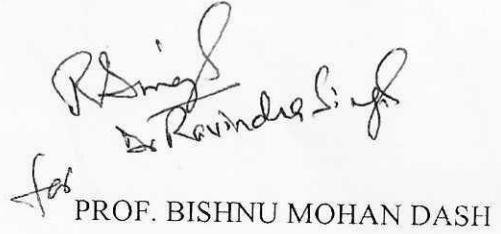 R Singh
Dr Ravindra Singh
for
PROF. BISHNU MOHAN DASH